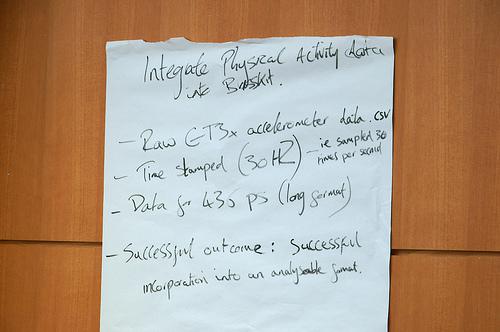 Integrate Physical Activity data
into Brisskit.
- Raw GT3x accelerometer data .csv
- Time stamped (30HZ) - ie sampled 30
times per second
- Data for 430 ps (long format)
- Successful outcome: successful
incorporation into an analyseable format.